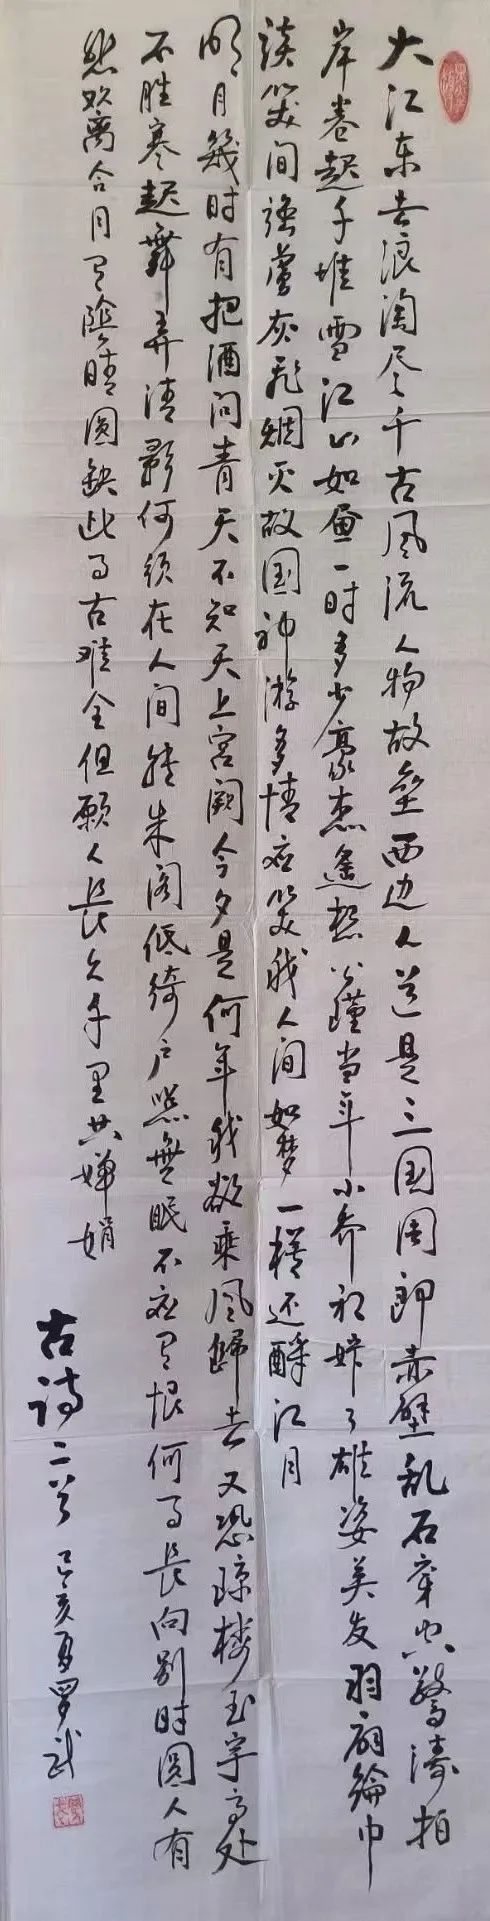 大江东去浪淘尽千古风流人物故垒西边人道是三国周郎赤壁乱石穿空驚涛拍
岸卷起千堆雪江山如画一时多少豪杰遥想公瑾当年小乔初嫁了雄姿英发羽扇纶巾
谈笑间强虏灰飞烟灭故国神游多情应笑我人间如梦一樽还酹江月
明月幾时有把酒问青天不知天上宫阙今夕是何年我欲乘风歸去又恐琼楼玉宇高处
不胜寒起舞弄清影何须在人间转朱阁低绮户照無眠不应有恨何事長向别时圆人有
悲欢离合月有陰晴圆缺此事古难全但願人長久千里共婵娟
古诗二首 己亥夏罗武